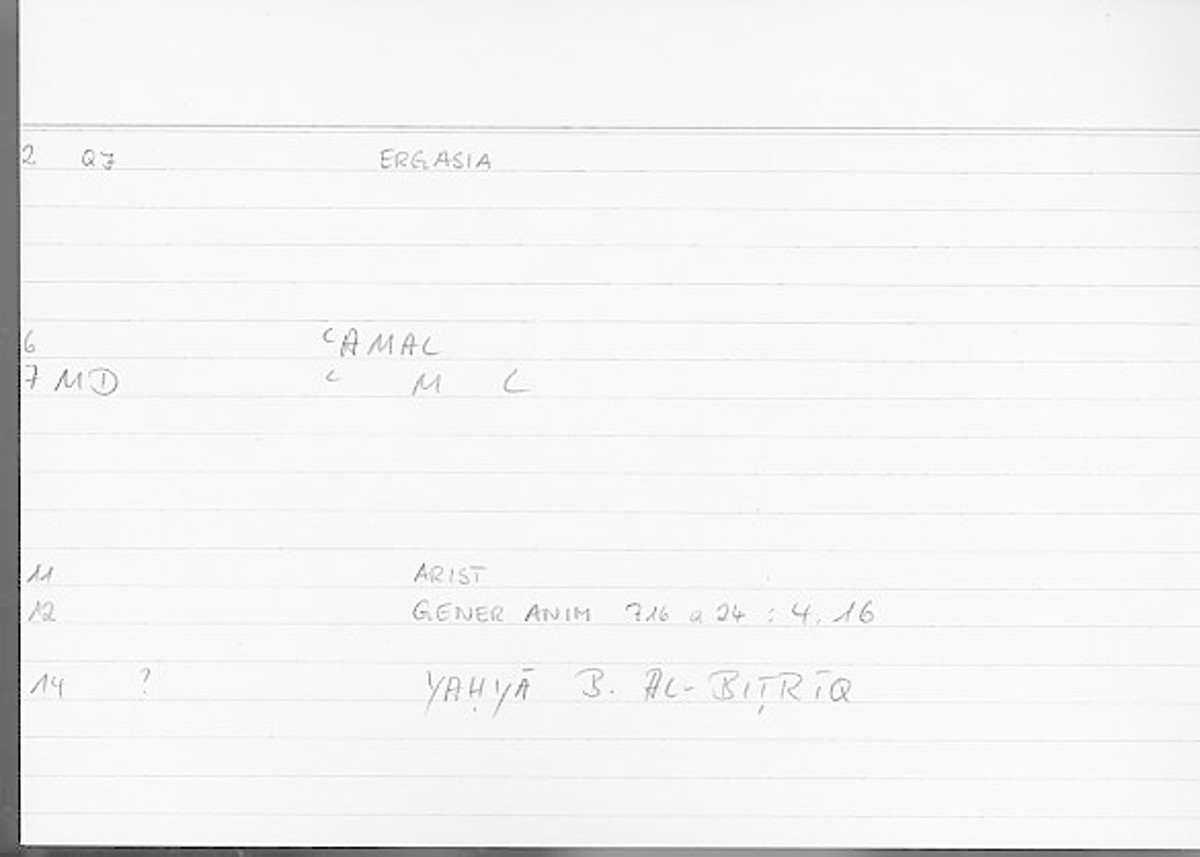 2 Q7 ERGASIA
6 ʿAMAL
7 MD ʿ M L
11 ARIST
12 GENER ANIM 716 a 24 : 4, 16
14 ? YAḤYĀ B. AL-BIṬRĪQ